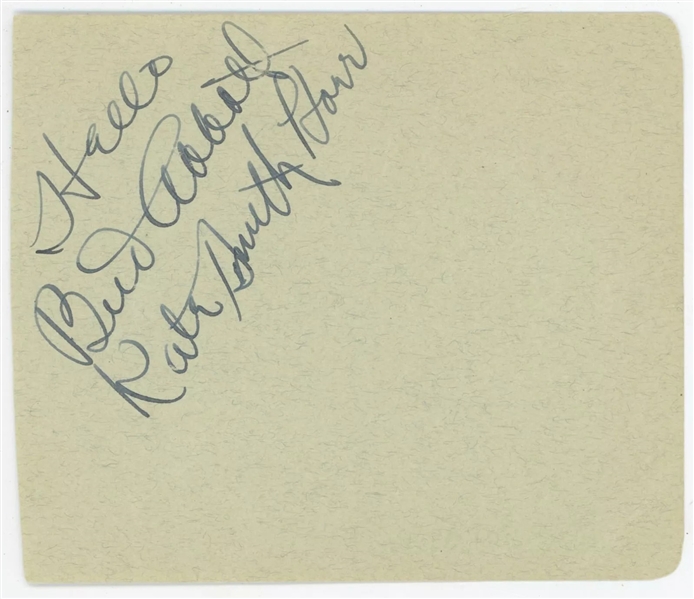 Hello
Bud Abbott
Kate Smith Hour